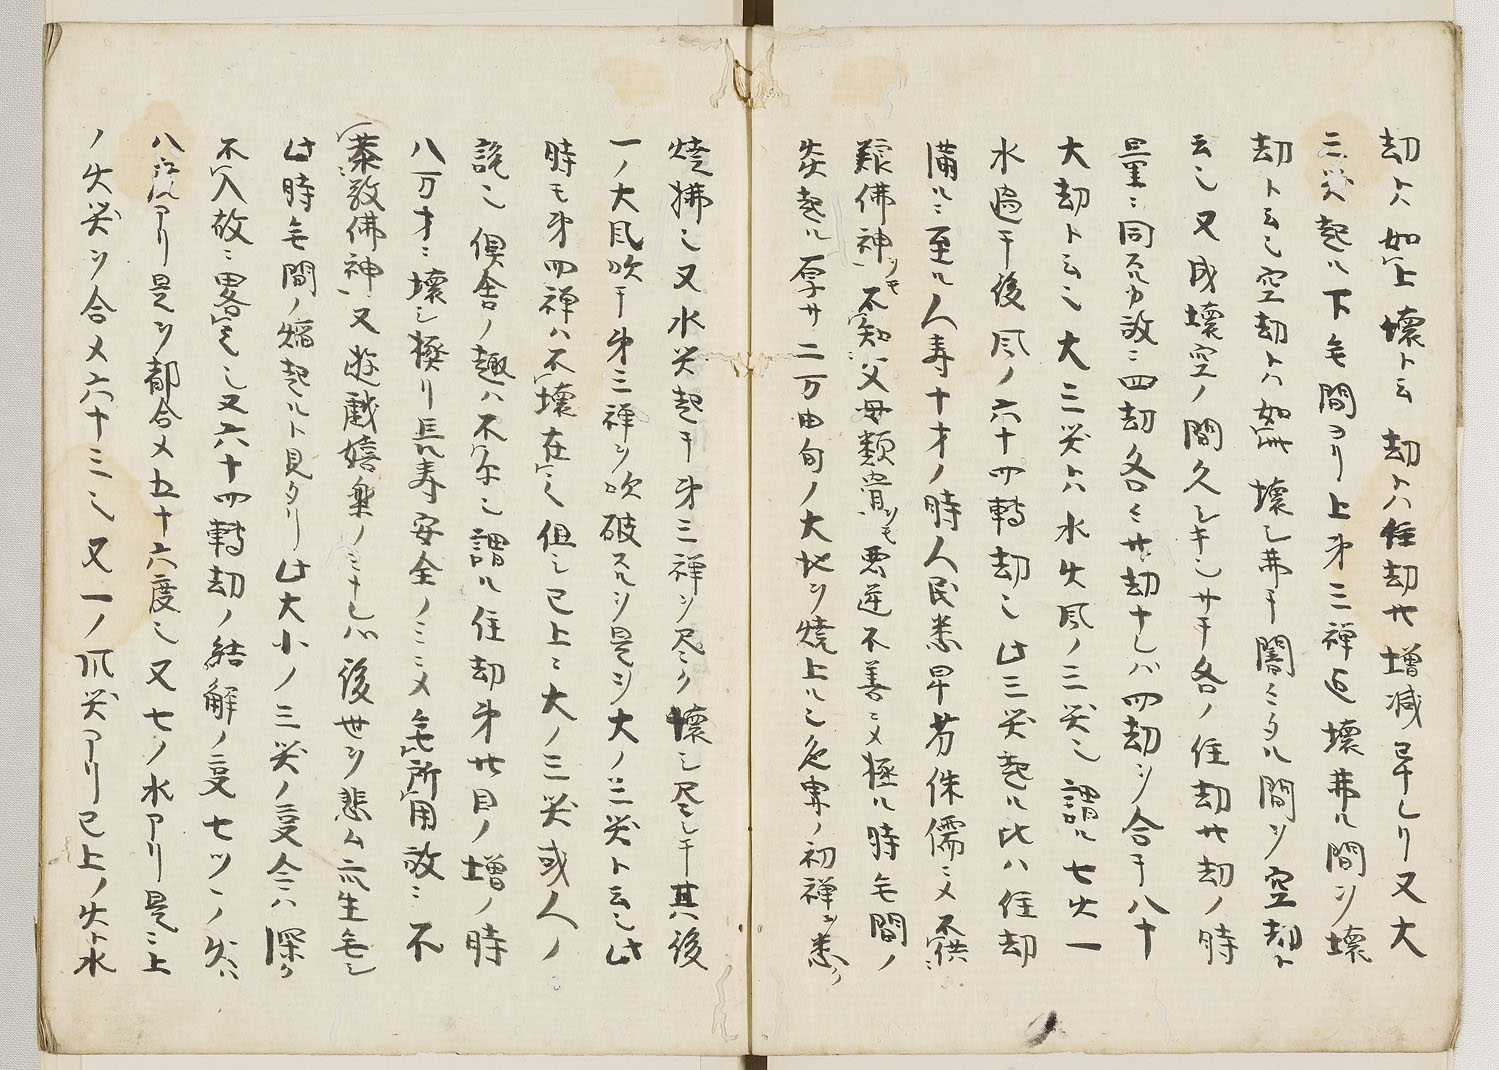 劫ト如上壊ト云劫トハ住劫廿増減畢シリ又大
三災起ル下無間ヨリ上第三禅迄壊弗ル間ヲ壊
劫ト云ヒ空劫トハ如此壊シ弗テ闇ミタル間ヲ空劫ト
云ヒ又成壊空ノ間久シキヒサテ各ノ住劫廿劫ノ時
量ニ同スルカ故ニ四劫各々廿劫ナレハ四劫ヲ合テ八十
大劫ト云ヒ大三災トハ水火風ノ三災ヒ謂ル七火一
水過テ後風ノ六十四轉劫ヒ此三災起ル比ハ住劫
満ルニ至ル人寿十才ノ時人民悉早芳侏儒ニメ不供
難佛神ヲモ不知父母類骨ヲモ悪逆不善ニメ極ル時無間ノ
炎起ル厚サ二万由旬ノ大地ヲ焼上ルヒ色界ノ初禅ヲ悉ク
焼拂ヒ又水災起テ第三禅ヲ尽ク壊シ尽シテ其後
一ノ大風吹テ第三禅ヲ吹破スルヲ是ヲ大ノ三災ト云ヒ此
時モ第四禅ハ不壊在ヒ但シ已上ニ大ノ三災或人ノ
説ヒ倶舎ノ趣ハ不尓ヒ謂ル住劫第廿目ノ増ノ時
八万才ニ壊シ極リ長寿安全ノミニメ無所用故ニ不
恭敬佛神又遊戯嬉楽ノミナレハ後世ヲ悲ム衆生無シ
此時無間ノ焔起ルト見タリ此大小ノ三災ノ変合ハ深ク
不入故ニ畧定ヒ又六十四轉劫ノ結解ノ変七ツツノ火ハ
八流アリ是ヲ都合メ五十六度ヒ又七ノ水アリ是ニ上
ノ火災ヲ合メ六十三ヒ又一ノ風災アリ已上ノ火ト水